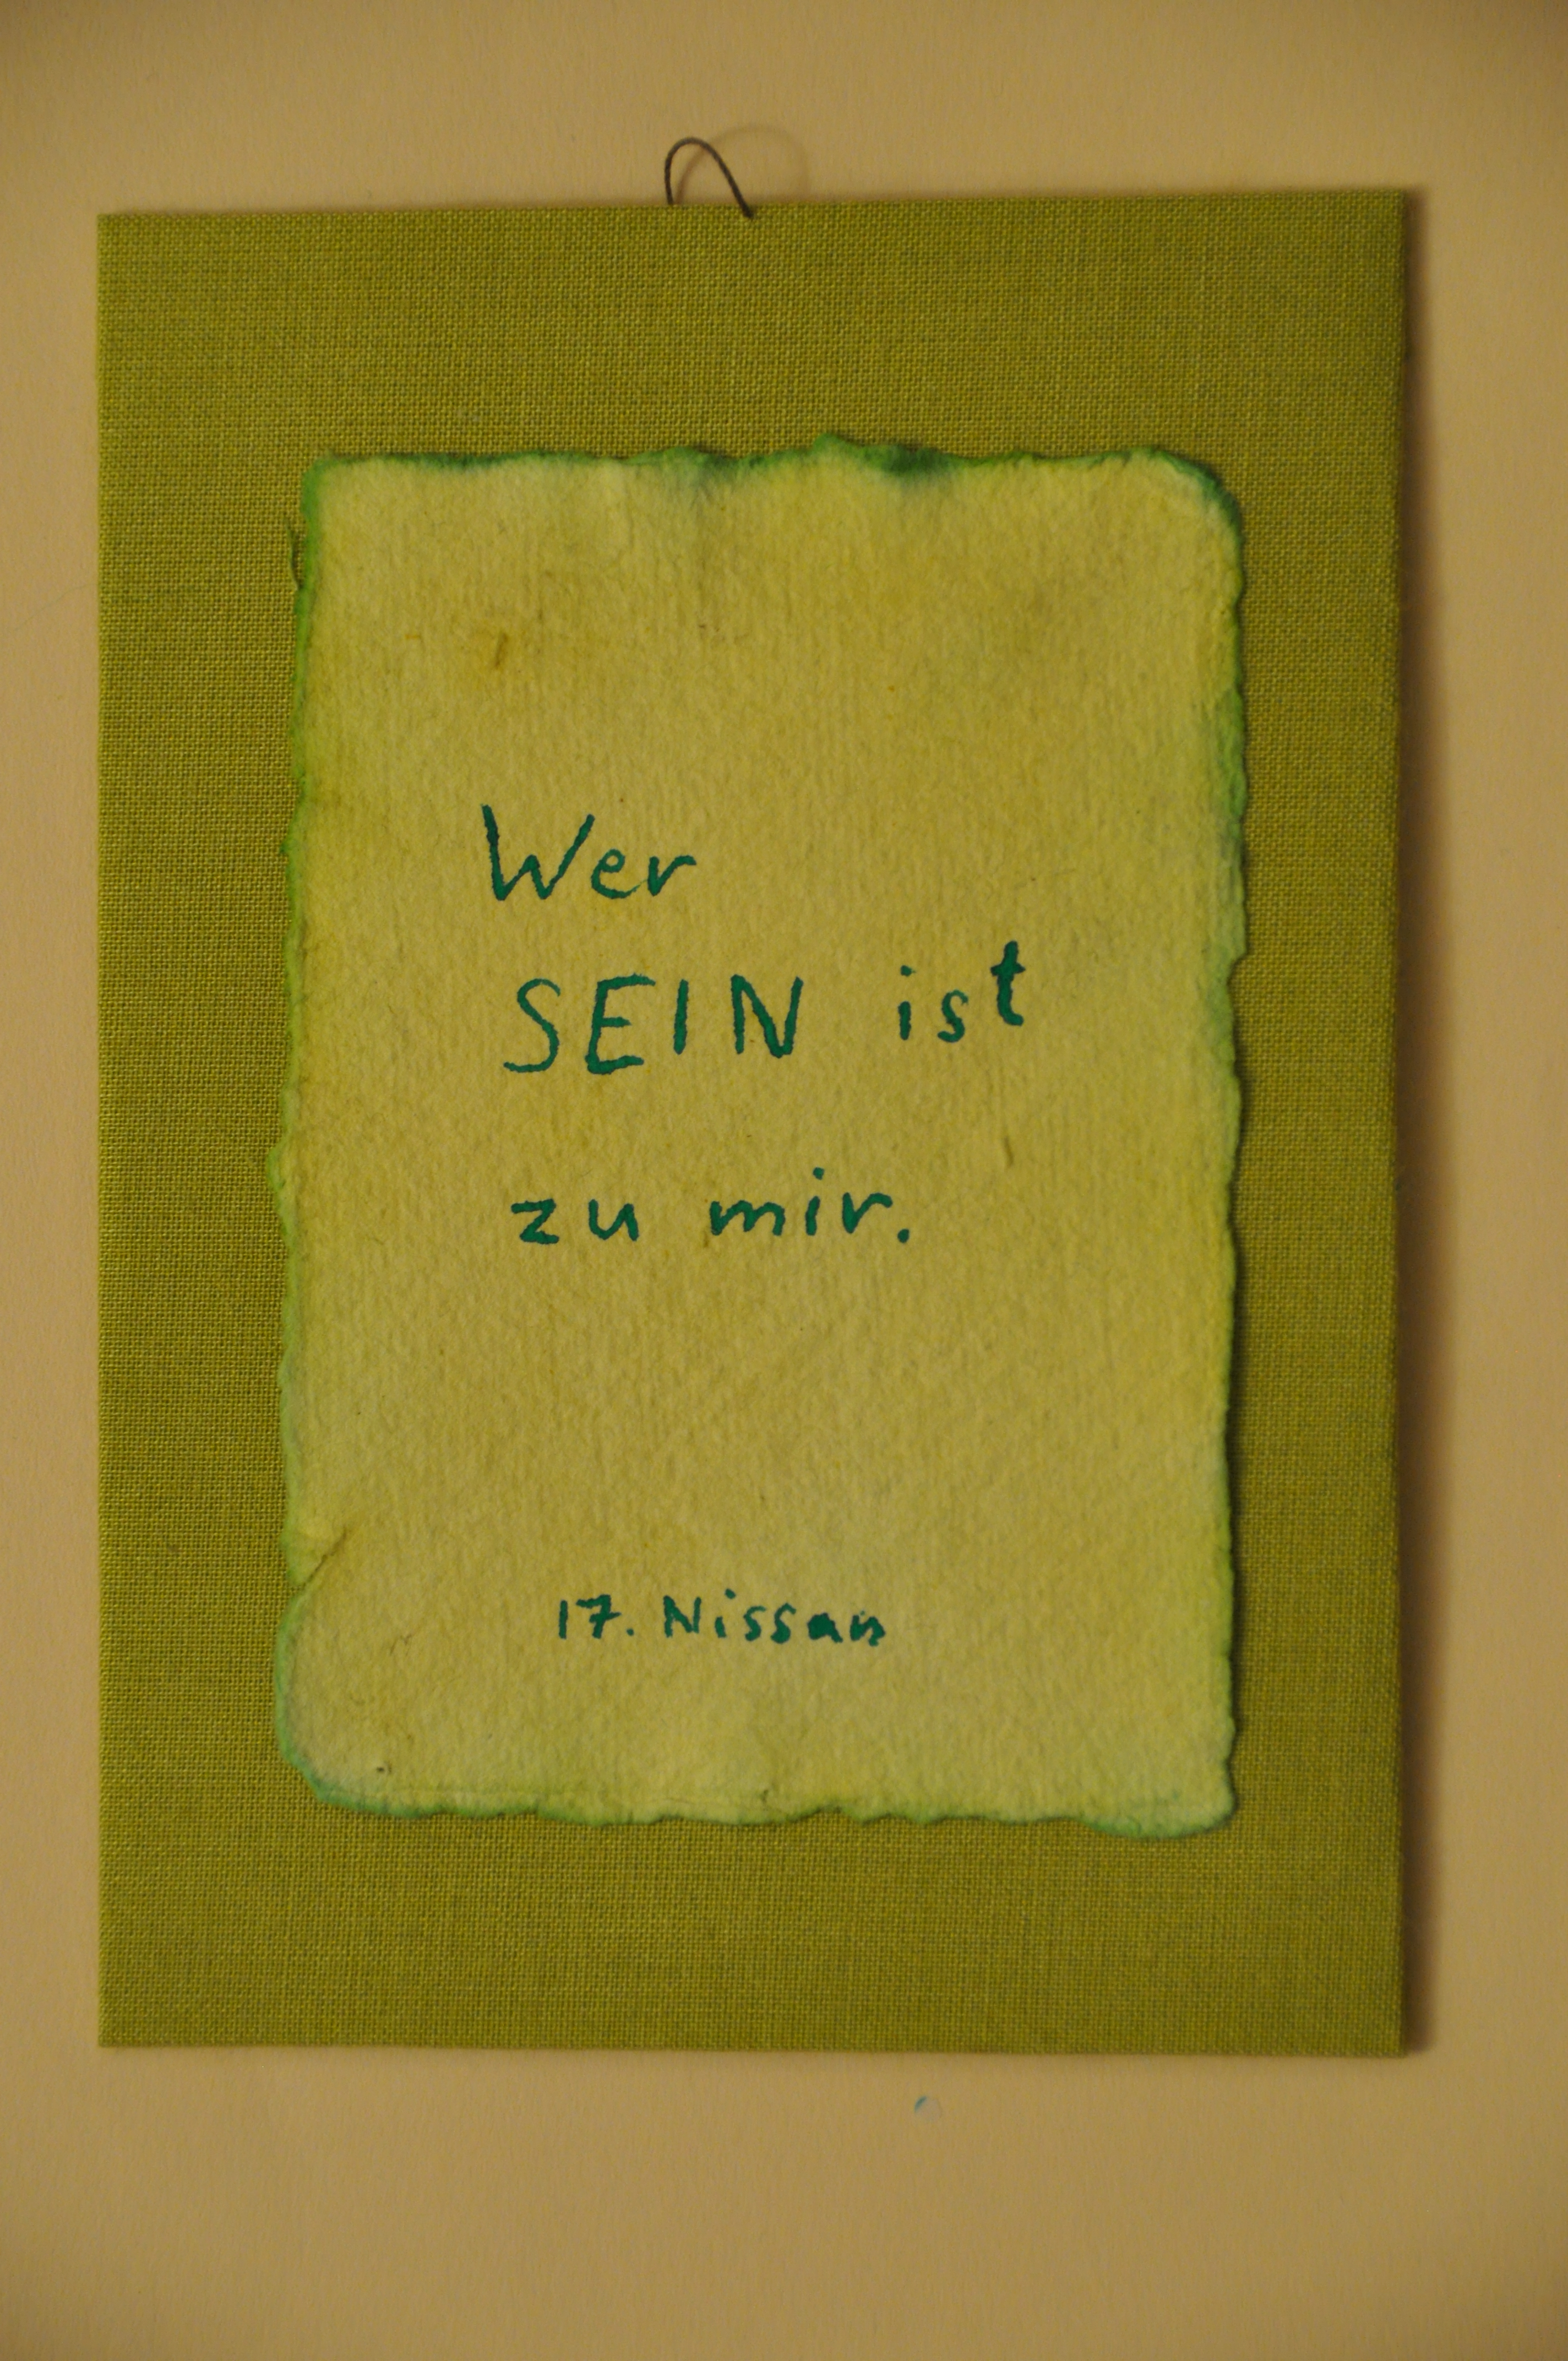 Wer
SEIN ist
zu mir.
17. Nissan